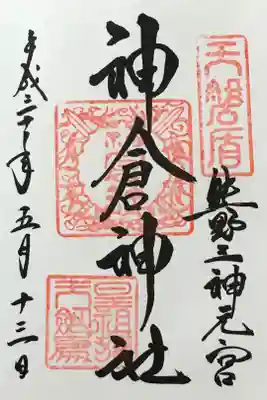 天磐盾
熊野三神元宮
神倉神社
平成三十年 五月 十三日